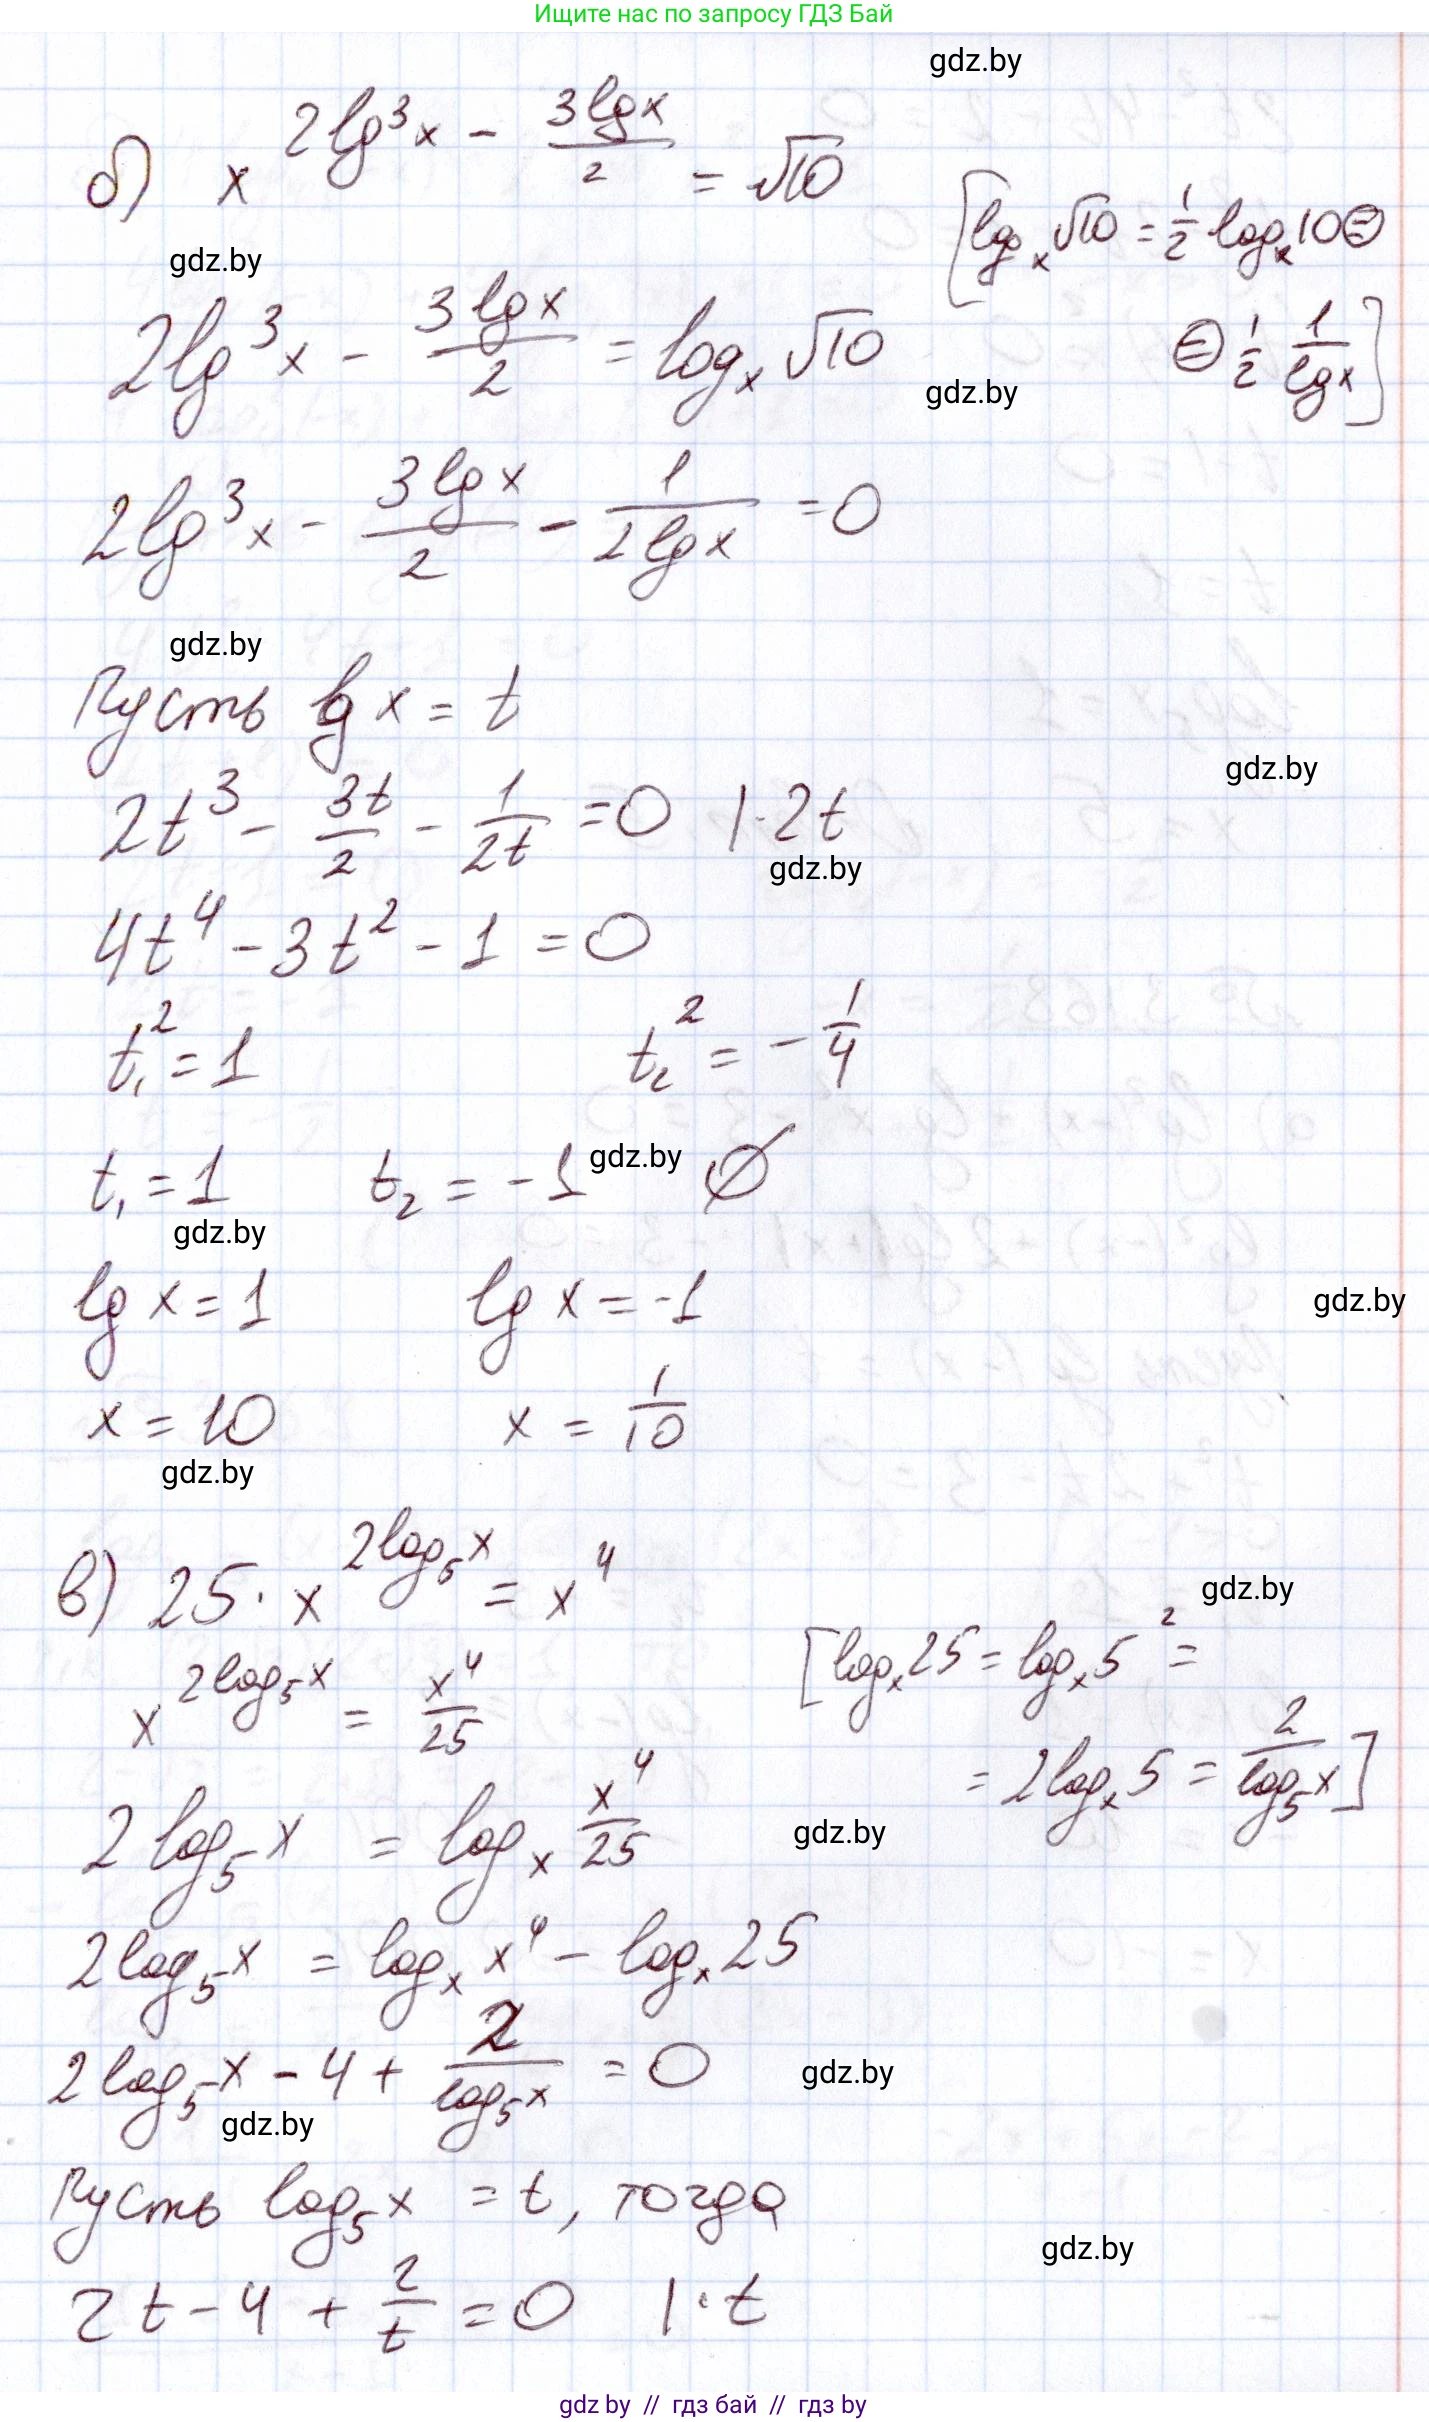 Ищите нас по запросу ГДЗ Бай
gdz.by
б) x^(2lg³x − 3lgx/2) = √10
[log_x √10 = 1/2 log_x 10 ⊜
gdz.by
⊜ 1/2 · 1/lgx]
2lg³x − 3lgx/2 = log_x √10
gdz.by
2lg³x − 3lgx/2 − 1/(2lgx) = 0
gdz.by
Пусть lg x = t
gdz.by
2t³ − 3t/2 − 1/(2t) = 0 |·2t
gdz.by
4t⁴ − 3t² − 1 = 0
t₁² = 1 t₂² = −1/4
t₁ = 1 t₂ = −1 gdz.by ∅
gdz.by
lg x = 1 lg x = −1
gdz.by
x = 10 x = 1/10
gdz.by
в) 25 · x^(2log₅x) = x⁴
gdz.by
[log_x 25 = log_x 5² =
x^(2log₅x) = x⁴/25
= 2log_x 5 = 2/log₅x]
2 log₅x = log_x x⁴/25
gdz.by
2log₅x = log_x x⁴ − log_x 25
2log₅x − 4 + 2/log₅x = 0
gdz.by
gdz.by
Пусть log₅x = t, тогда
gdz.by
2t − 4 + 2/t = 0 |·t
gdz by // гдз бай // гдз by